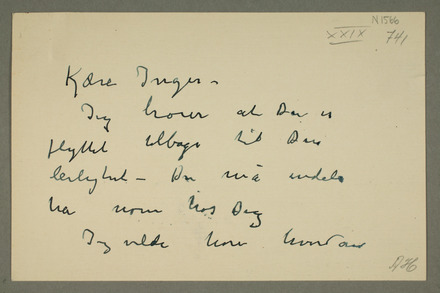 N1566
XXIX 741
Kjære Inger –
Jeg hører at Du er
flyttet tilbage til Din
leilighet – Du må endelig
ha noen hos Dig
Jeg vilde høre hvordan